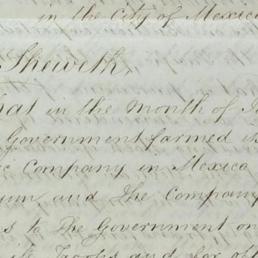 in the City of Mexico
Sheweth,
hat in the month of J
Government farmed
c Company in Mexico
and The Company
s to The Government on
and